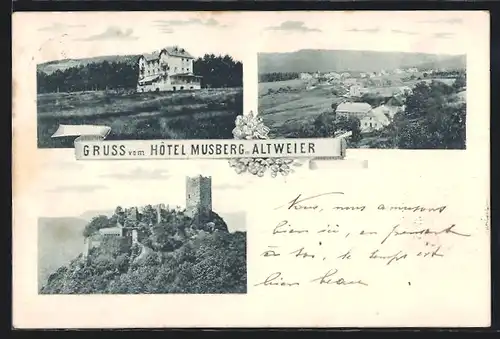 GRUSS vom HÔTEL MUSBERG in ALTWEIER
Nous, nous amusons
bien ici, en pensant
à toi, le temps est
bien beau